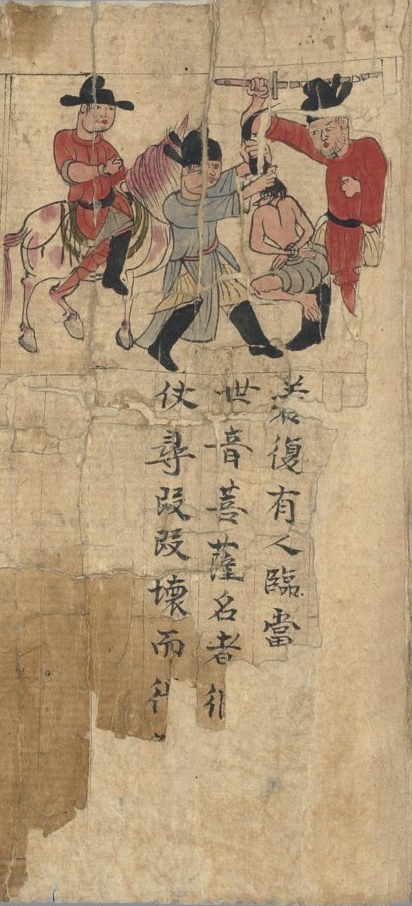 若復有人臨當
世音菩薩名者
仗尋段段壞而